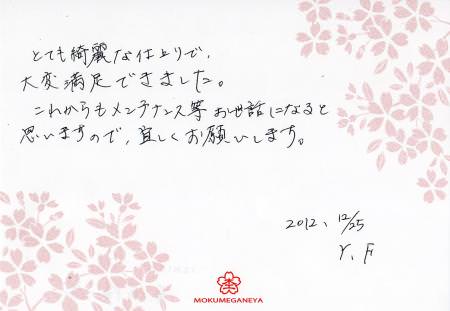 とても綺麗な仕上りで、
大変満足できました。
これからもメンテナンス等お世話になると
思いますので、宜しくお願いします。
2012、12/25
Y、F
MOKUMEGANEYA